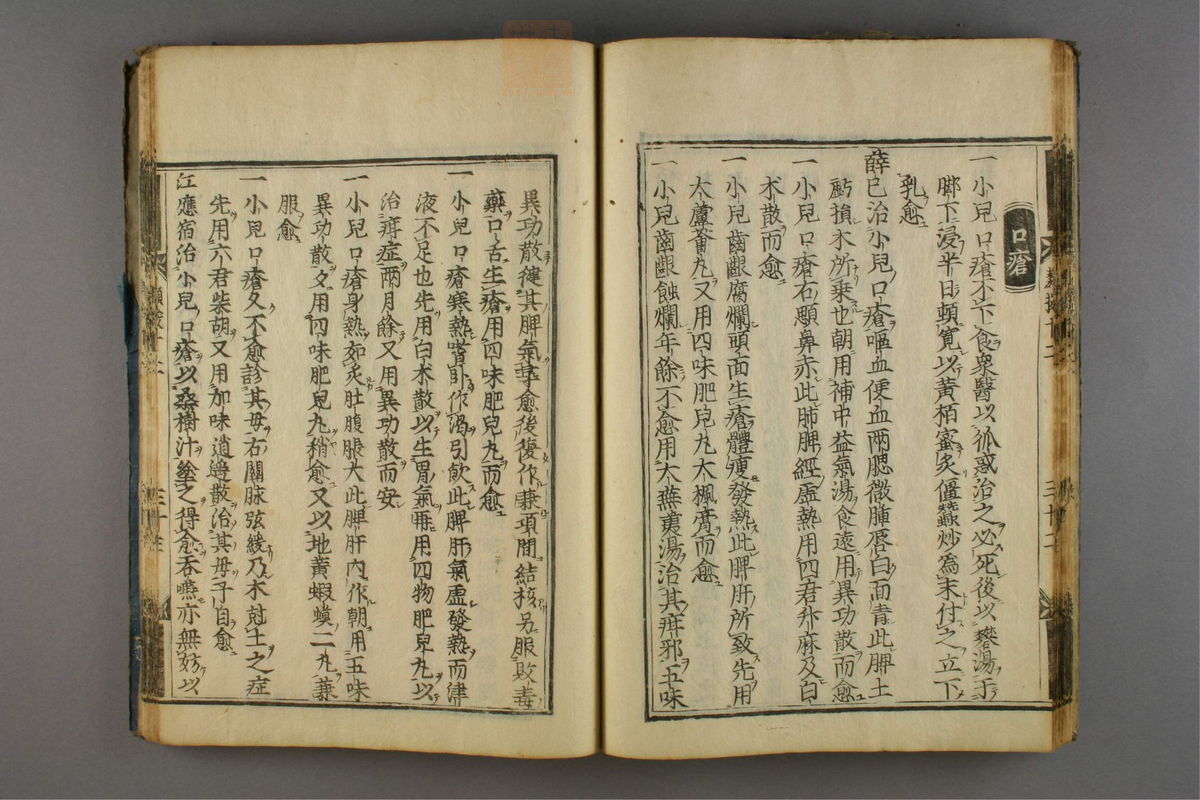 口瘡
一 小兒口瘡不下食衆醫以狐惑治之必死後以礬湯于
脚下浸半日頓寬以黃栢蜜炙僵蠶炒為末付之立下
乳愈
薛已治小兒口瘡嘔血便血兩腮微腫唇白面青此脾土
虧損木所乗也朝用補中益氣湯食遠用異功散而愈
一 小兒口瘡右顋鼻赤此肺脾經虛熱用四君升麻及白
术散而愈
一 小兒齒齦腐爛頭面生瘡體瘦發熱此脾肝所致先用
大蘆薈丸又用四味肥兒丸大楓膏而愈
一 小兒齒齦蝕爛年餘不愈用大蕪荑湯治其疳邪五味
異功散健其脾氣尋愈後復作兼項間結核另服敗毒
藥口舌生瘡用四味肥兒丸而愈
一 小兒口瘡寒熱嗜卧作渴引飲此脾肝氣虛發熱而津
液不足也先用白术散以生胃氣再用四物肥兒丸以
治疳症兩月餘又用異功散而安
一 小兒口瘡身熱如炙肚腹脹大此脾肝內作朝用五味
異功散夕用四味肥兒丸稍愈又以地黃蝦蟆二丸兼
服愈
一 小兒口瘡久不愈診其母右關脉弦緩乃木尅土之症
先用六君柴胡又用加味逍遙散治其母子自愈
江應宿治小兒口瘡以桑樹汁塗之得愈吞嚥亦無妨以